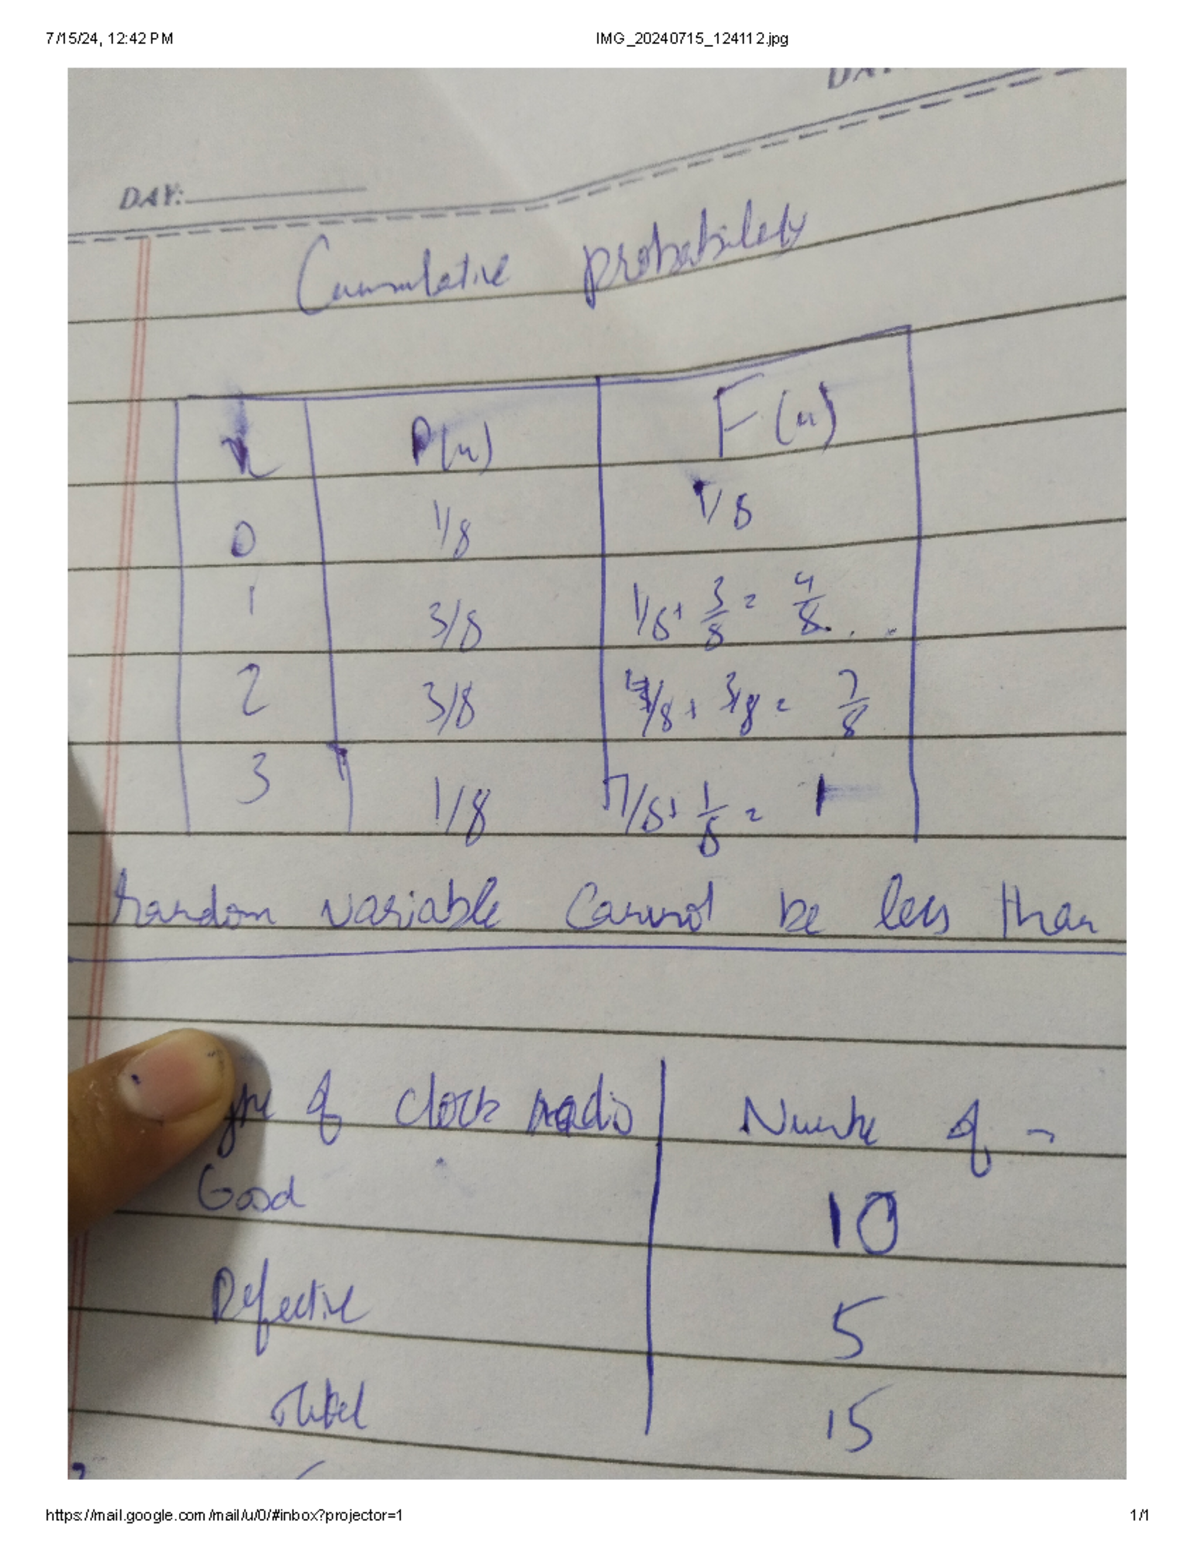 7/15/24, 12:42 PM IMG_20240715_124112.jpg
DAY:
Cummulative probability
x P(x) F(x)
0 1/8 1/8
1 3/8 1/8+ 3/8 = 4/8
2 3/8 4/8 + 3/8 = 7/8
3 1/8 7/8+ 1/8 = 1
random variable Cannot be less than
of clock radio Number of
Good 10
Defective 5
Total 15
https://mail.google.com/mail/u/0/#inbox?projector=1 1/1